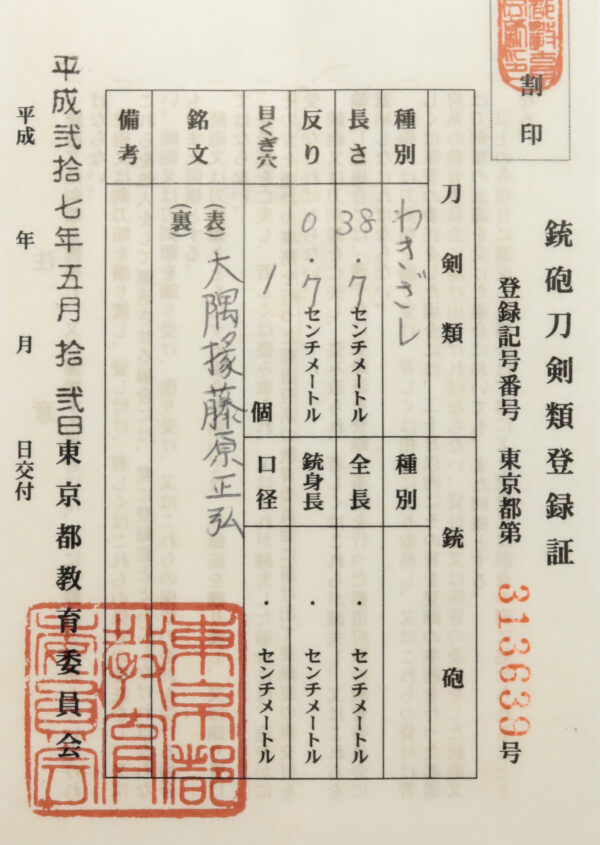 割印
銃砲刀剣類登録証
登録記号番号 東京都第 313639 号
刀剣類
種別 わきざし
長さ 38.7センチメートル
反り 0.7センチメートル
目くぎ穴 1個
銘文 (表) 大隅掾藤原正弘
(裏)
備考
銃砲
種別
全長 ・ センチメートル
銃身長 ・ センチメートル
口径 ・ センチメートル
平成弐拾七年五月拾弐日 東京都教育委員会
平成 年 月 日交付
東京都教育委員会